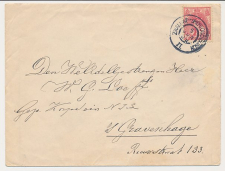 Den WelEdelgestrengen Heer
W. G. Dorff
Gep. Kapitein N.I.L.
's Gravenhage
Riouwstraat 133.